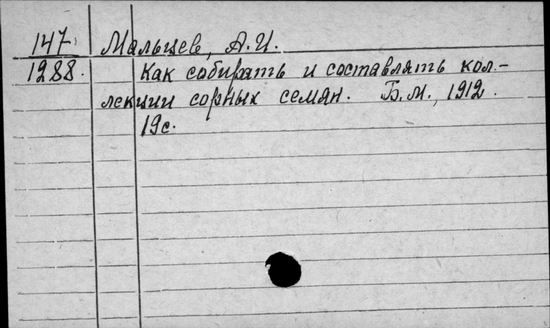 147 Мальцев, А.И.
1288. Как собирать и составлять кол-
лекции сорных семян. Б.М., 1912.
19с.